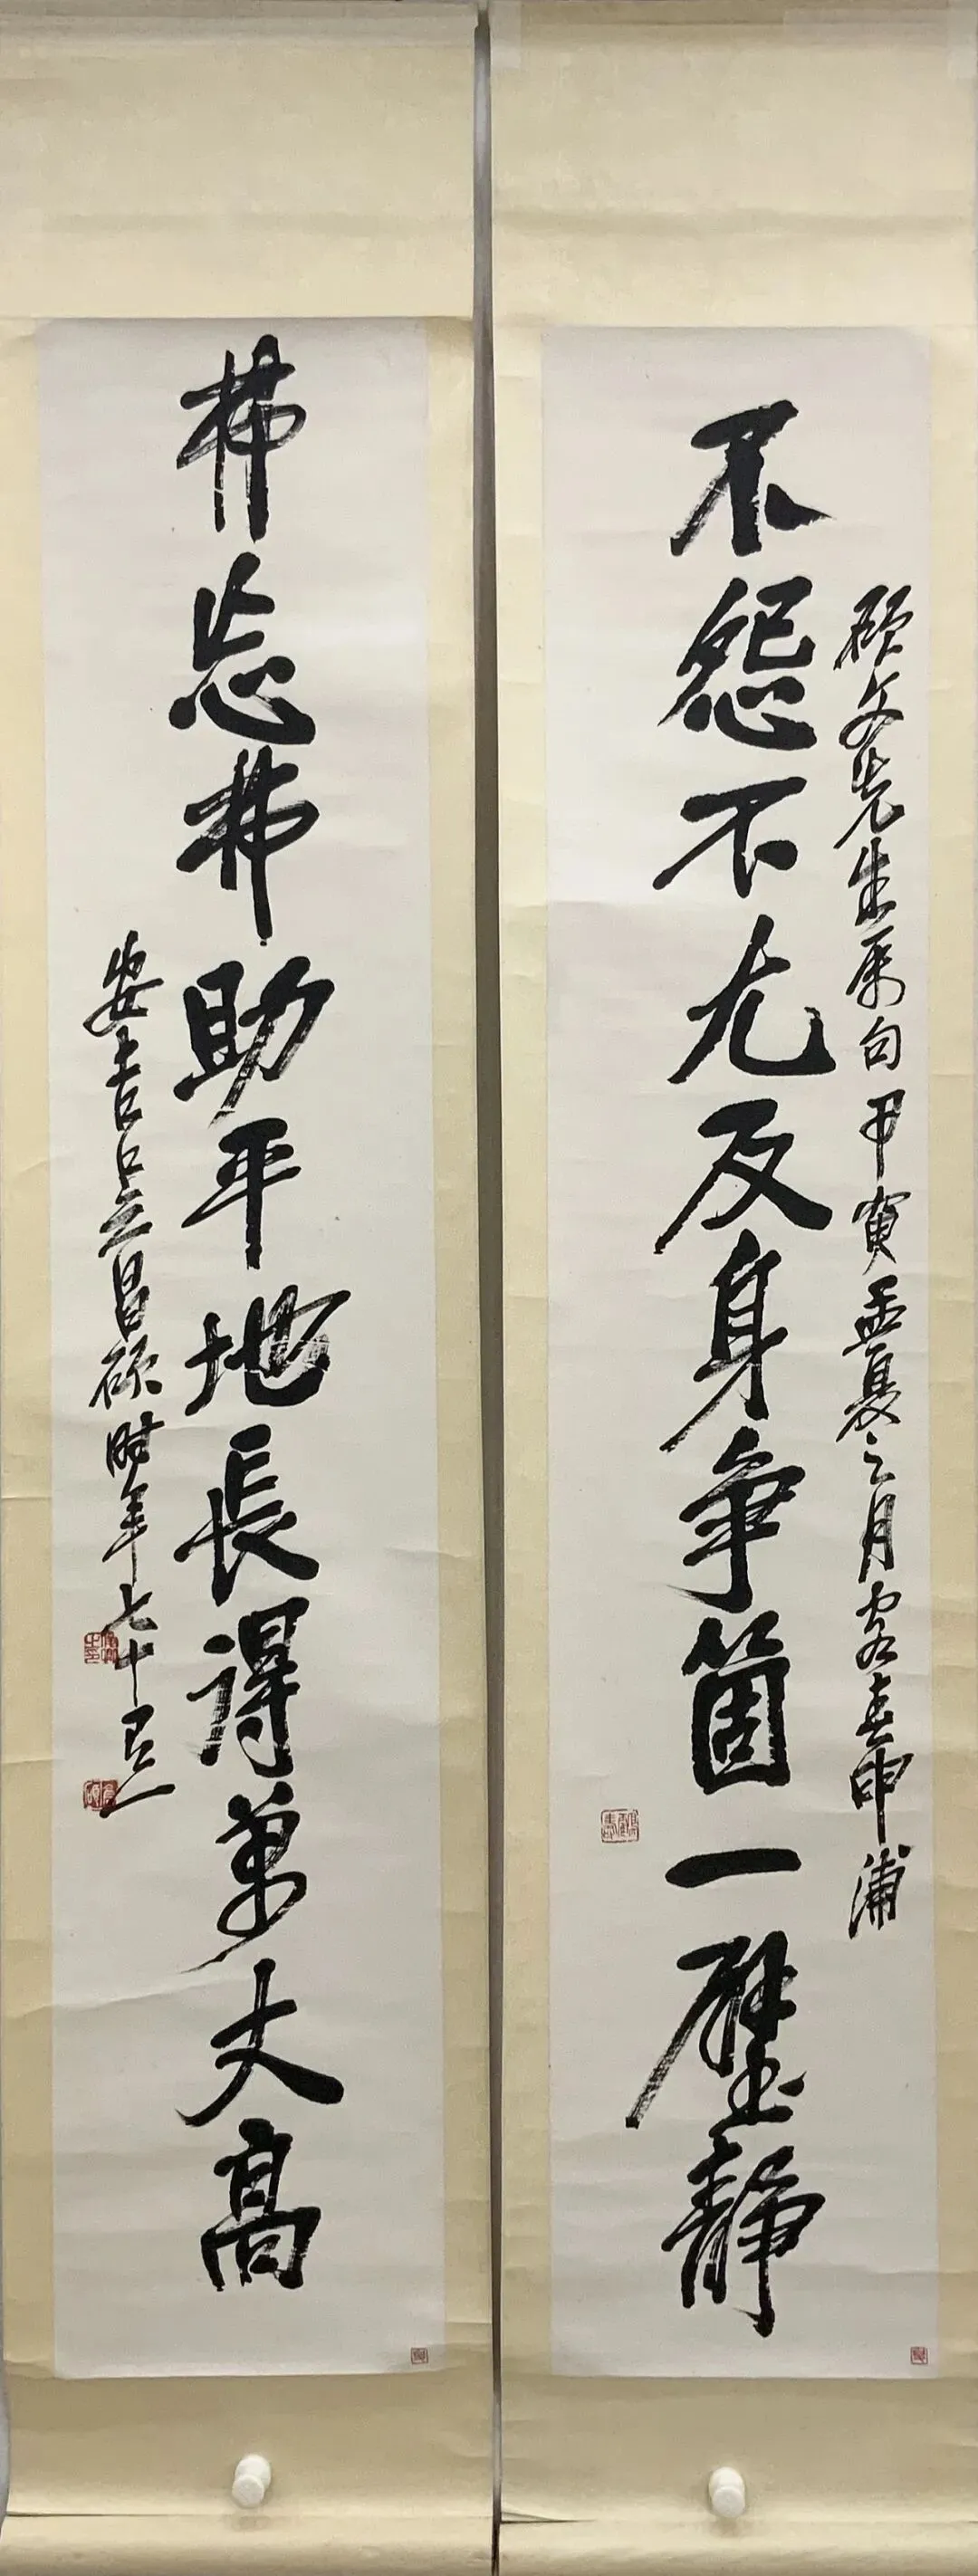 不怨不尤反身争箇一壁静
硕文先生属句甲寅孟夏之月客春申浦
弗忘弗助平地長得萬丈高
安吉吴昌硕时年七十有一